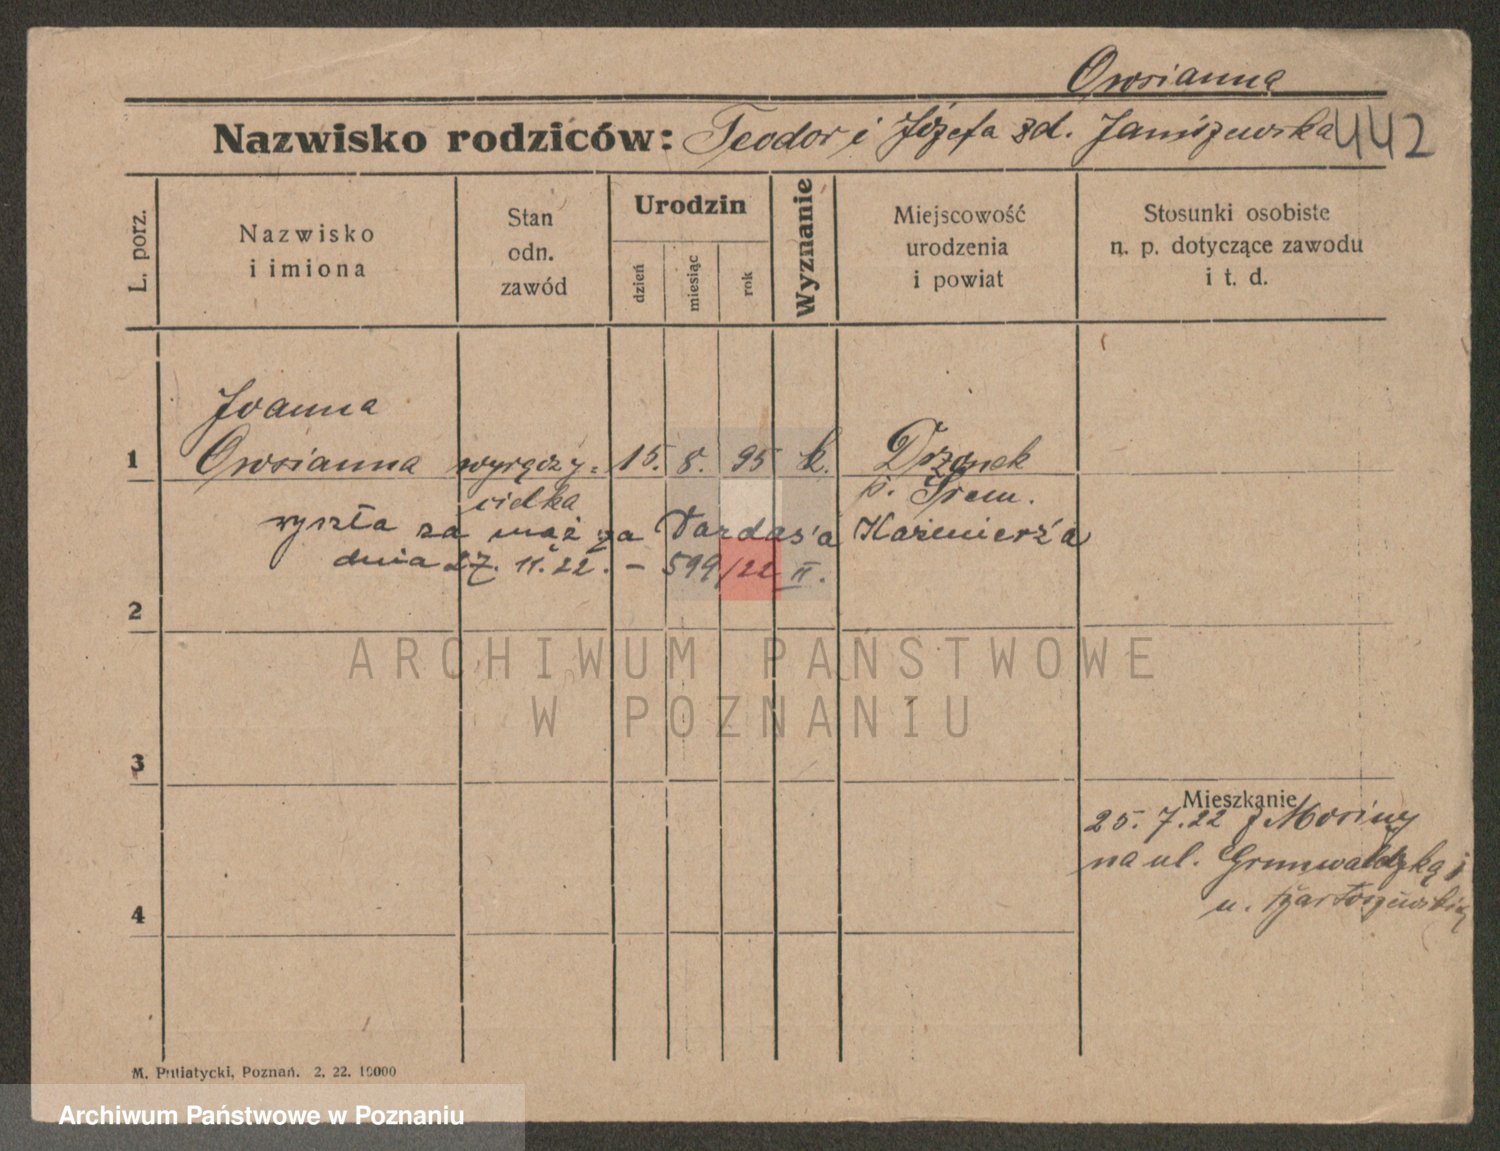 Owsianna
Nazwisko rodziców: Teodor i Józefa zd. Janiszewska 442
L. porz.
Nazwisko
i imiona
Stan
odn.
zawód
Urodzin
dzień
miesiąc
rok
Wyznanie
Miejscowość
urodzenia
i powiat
Stosunki osobiste
n. p. dotyczące zawodu
i t. d.
Joanna
1 Owsianna wyręczy= 15. 8. 95 k. Drzonek
cielka p. Śrem.
wyszła za mąż za Tardas'a Kaźmierz'a
dnia 27. 11. 22. - 599/22 II.
2
3
4
Mieszkanie
25. 7. 22 z Mosiny
na ul. Grunwaldzką
u.
M. Putiatycki, Poznań. 2. 22. 10000
ARCHIWUM PAŃSTWOWE
W POZNANIU
Archiwum Państwowe w Poznaniu